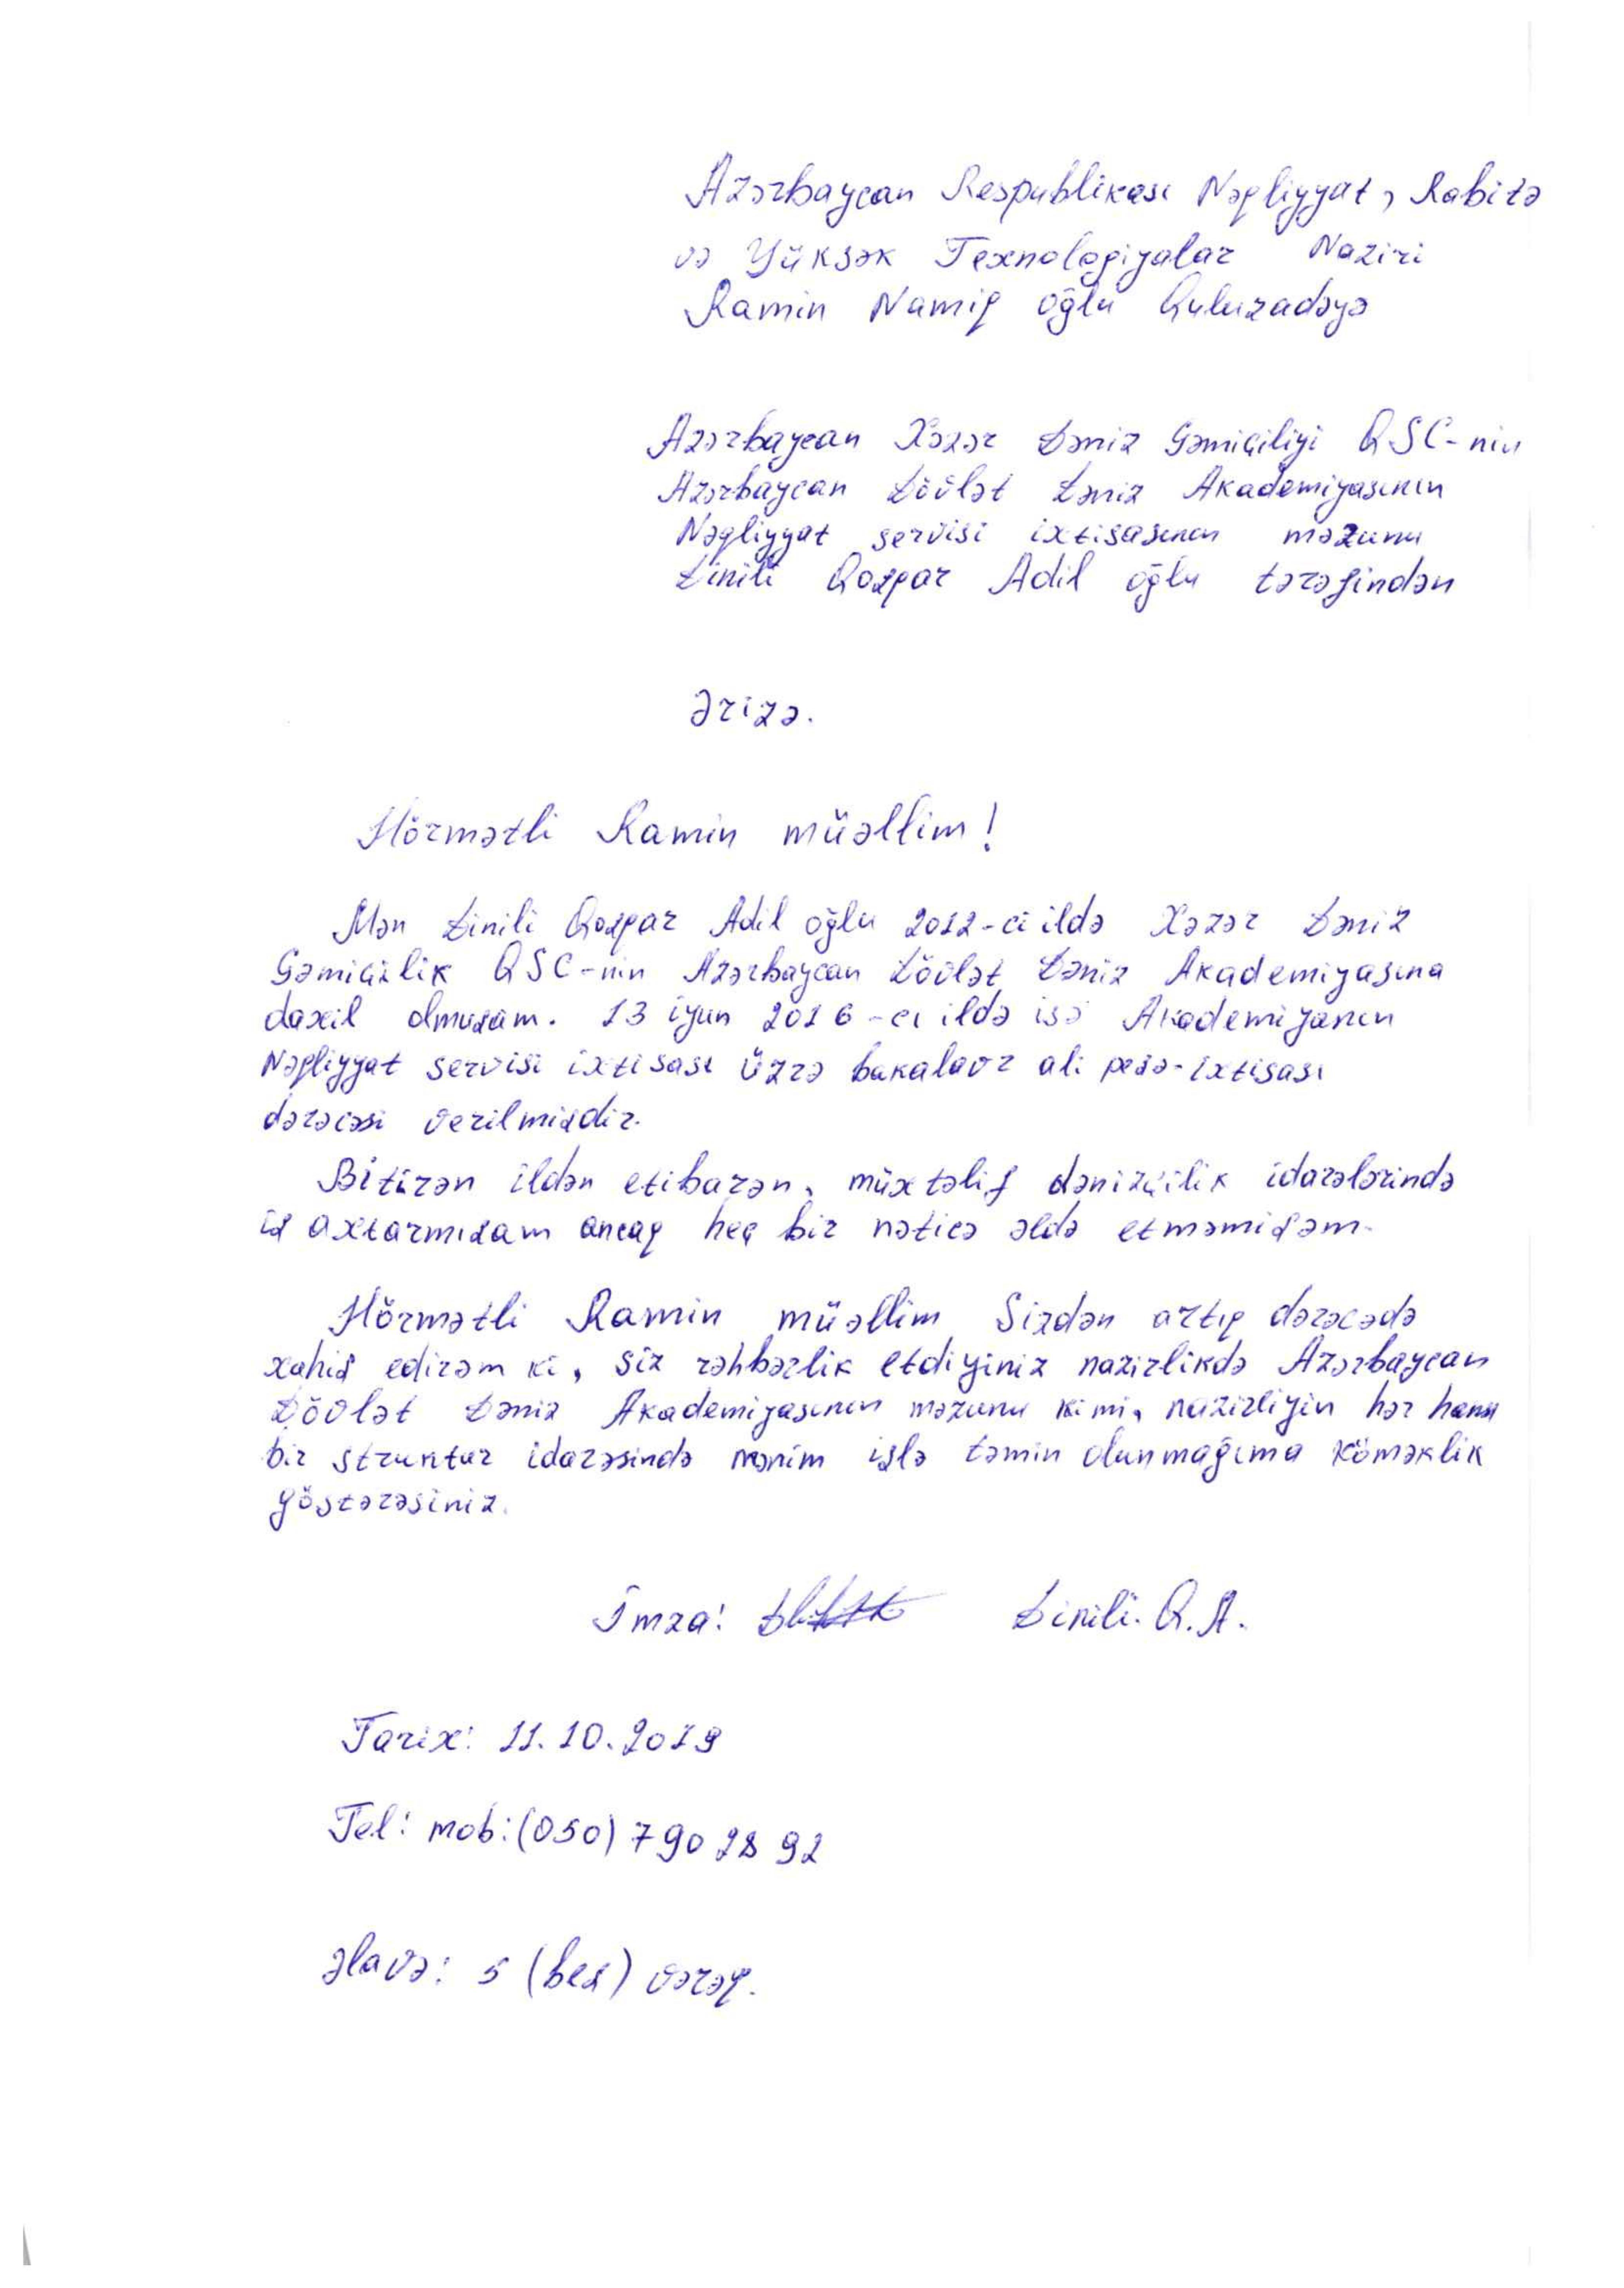 Azərbaycan Respublikası Nəqliyyat, Rabitə
və Yüksək Texnologiyalar Naziri
Ramin Namiq oğlu Quluzadəyə
Azərbaycan Xəzər Dəniz Gəmiçiliyi QSC-nin
Azərbaycan Dövlət Dəniz Akademiyasının
Nəqliyyat servisi ixtisasının məzunu
Dinili Qoşqar Adil oğlu tərəfindən
Ərizə.
Hörmətli Ramin müəllim!
Mən Dinili Qoşqar Adil oğlu 2012-ci ildə Xəzər Dəniz
Gəmiçilik QSC-nin Azərbaycan Dövlət Dəniz Akademiyasına
daxil olmuşam. 13 iyun 2016-cı ildə isə Akademiyanın
Nəqliyyat servisi ixtisası üzrə bakalavr ali peşə-ixtisası
dərəcəsi verilmişdir.
Bitirən ildən etibarən, müxtəlif dənizçilik idarələrində
iş axtarmışam ancaq heç bir nəticə əldə etməmişəm.
Hörmətli Ramin müəllim Sizdən artıq dərəcədə
xahiş edirəm ki, siz rəhbərlik etdiyiniz nazirlikdə Azərbaycan
Dövlət Dəniz Akademiyasının məzunu kimi, nazirliyin hər hansı
bir struktur idarəsində mənim işlə təmin olunmağıma köməklik
göstərəsiniz.
İmza: Dinili. Q.A.
Tarix: 11.10.2019
Tel: mob:(050) 790 28 92
Əlavə: 5 (beş) vərəq.